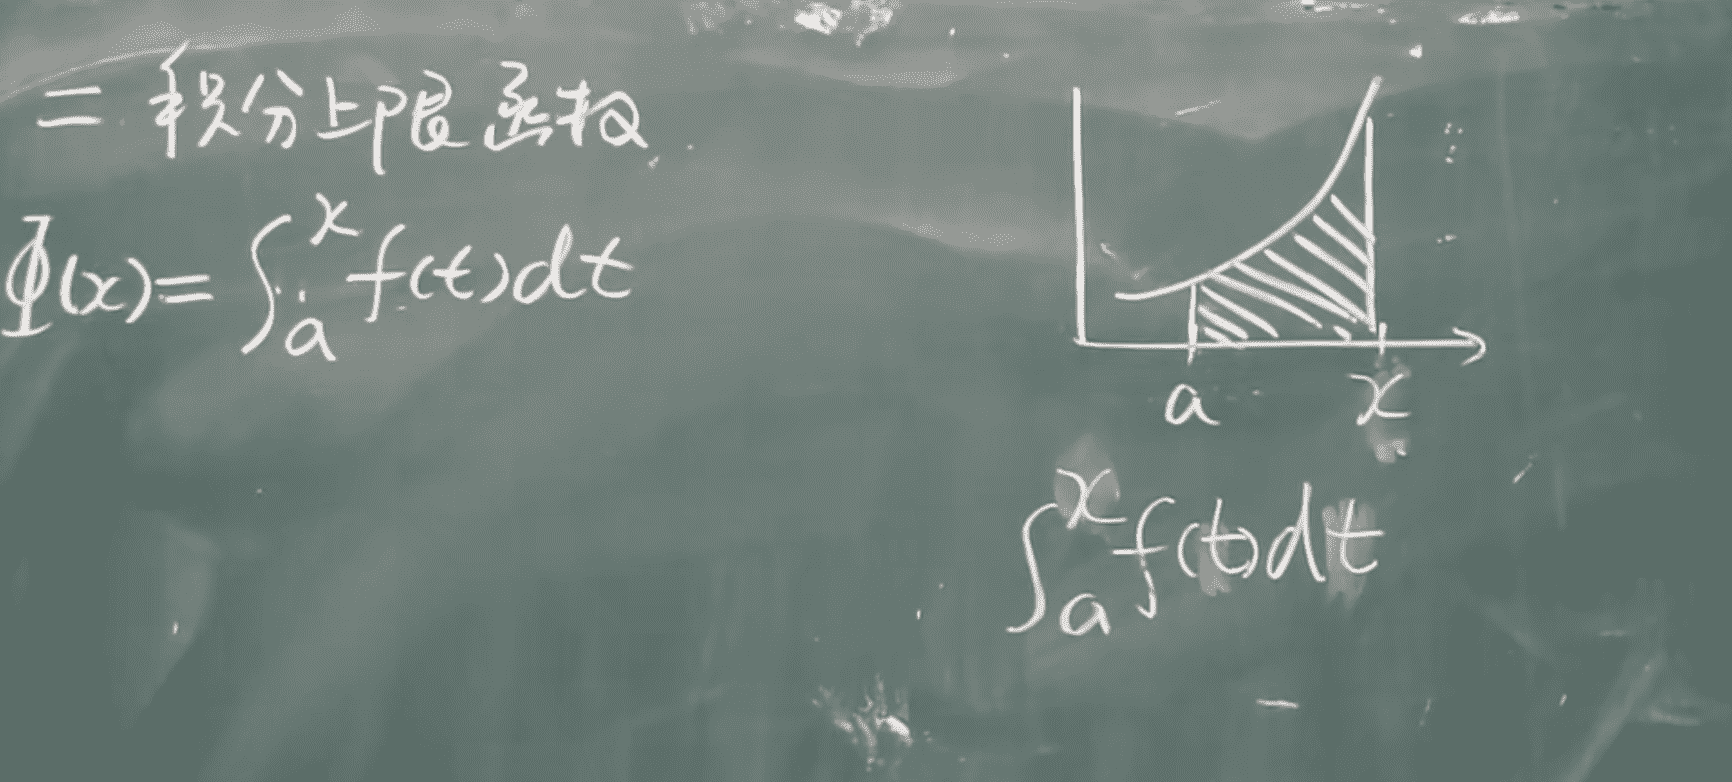 二 积分上限函数
Φ(x)=∫ₐˣf(t)dt
a x
∫ₐˣf(t)dt